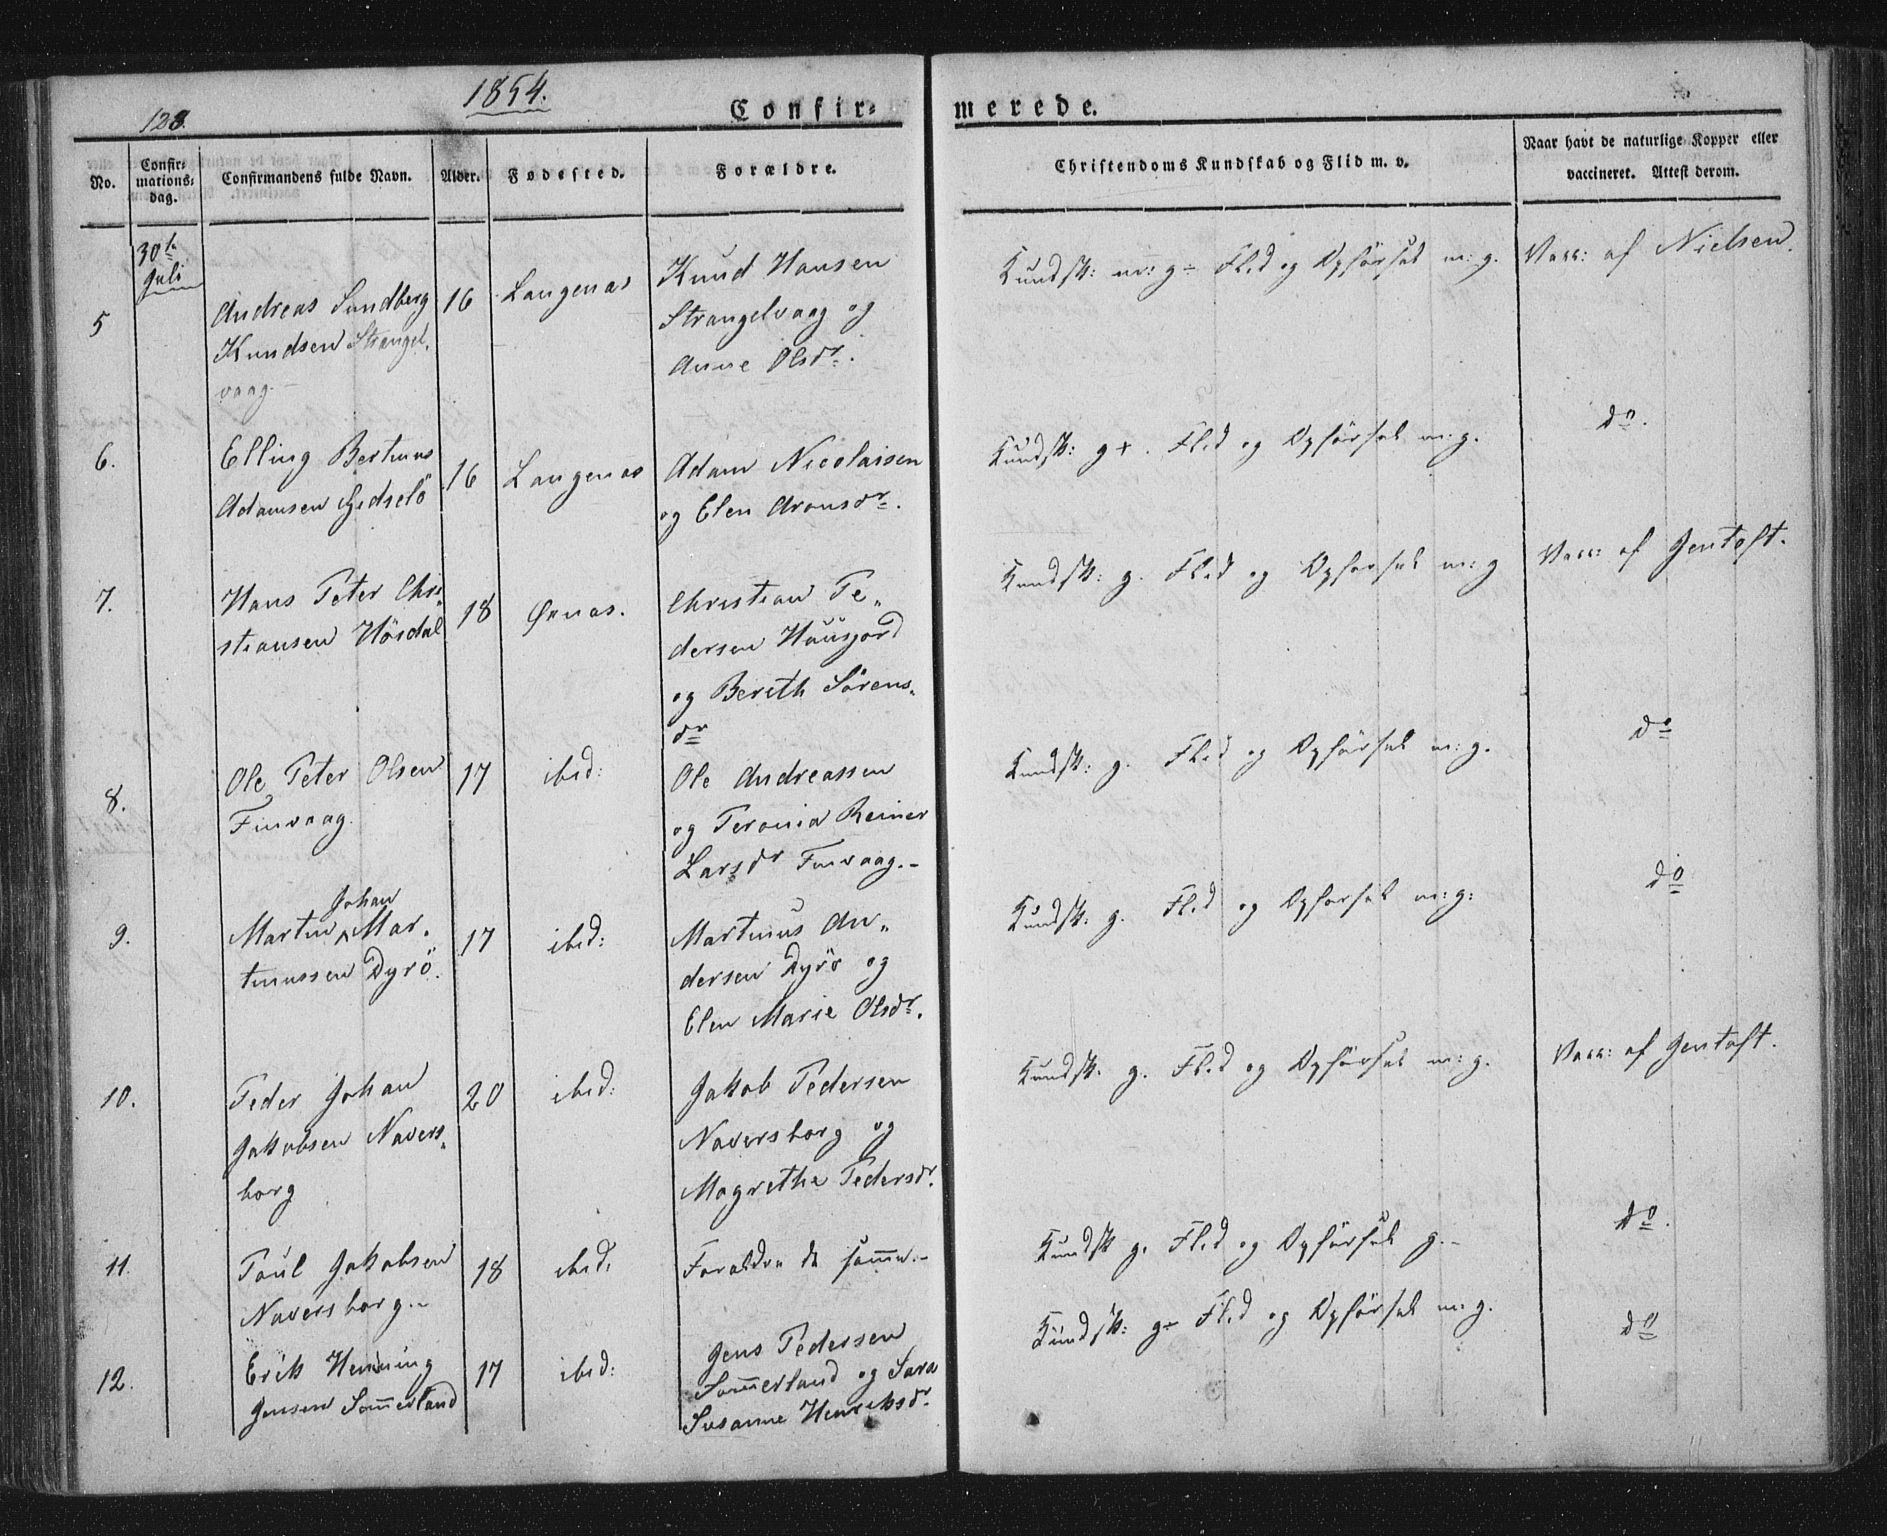 1854.
128.
Confir-
merede.
No.
Confir-
mations-
dag.
Confirmandens fulde Navn.
Alder.
Fødested.
Forældre.
Christendoms Kundskab og Flid m. v.
Naar havt de naturlige Kopper eller
vaccineret. Attest derom.
30te
Juli
5
Andreas Sundberg
Knudsen Strangel-
vaag
16
Langenas
Knud Hansen
Strangelvaag og
Anne Olsdr.
Kundsk: m: g ÷ Flid og Opförsel m: g.
Vacc: af Nielsen.
6.
Elling Bertinus
Adamsen Gjedselö
16
Langenas
Adam Nicolaisen
og Elen Aronsdr.
Kundsk: g+. Flid og Opförsel m: g.
do.
7.
Hans Peter Chri-
stiansen Hösdal
18
Ørnas.
Christian Pe-
dersen Haugjord
og Bereth Sörens-
dr
Kundsk: g. Flid og Opförsel m: g
Vacc: af Gentoft.
8.
Ole Peter Olsen
Finvaag
17
ibid:
Ole Andreassen
og Peronia Reiner
Larsdr Finvaag.-
Kundsk: g. Flid og Opförsel m: g.
do
9.
Johan
Martin ^ Mar-
tinussen Dyrö.
17
ibid:
Martinus An-
dersen Dyrö og
Elen Marie Olsdr.
Kundsk: g. Flid og Opförsel m: g:
do
10.
Peder Johan
Jakobsen Navers-
borg
20
ibid:
Jakob Pedersen
Naversborg og
Magrethe Pedersdr.
Kundsk. g. Flid og Opförsel m: g.
Vacc: af Gentoft.
11.
Poul Jakobsen
Naversborg.-
18
ibid.
Forældre de samme.-
Kundsk g. Flid og Opförsel g.-
do.
12.
Erik Henning
Jensen Som̅erland
17
ibid:
Jens Pedersen
Som̅erland og Sara
Susanne Henriksdr.
Kundsk: g÷ Flid og Opförsel m: g.
do